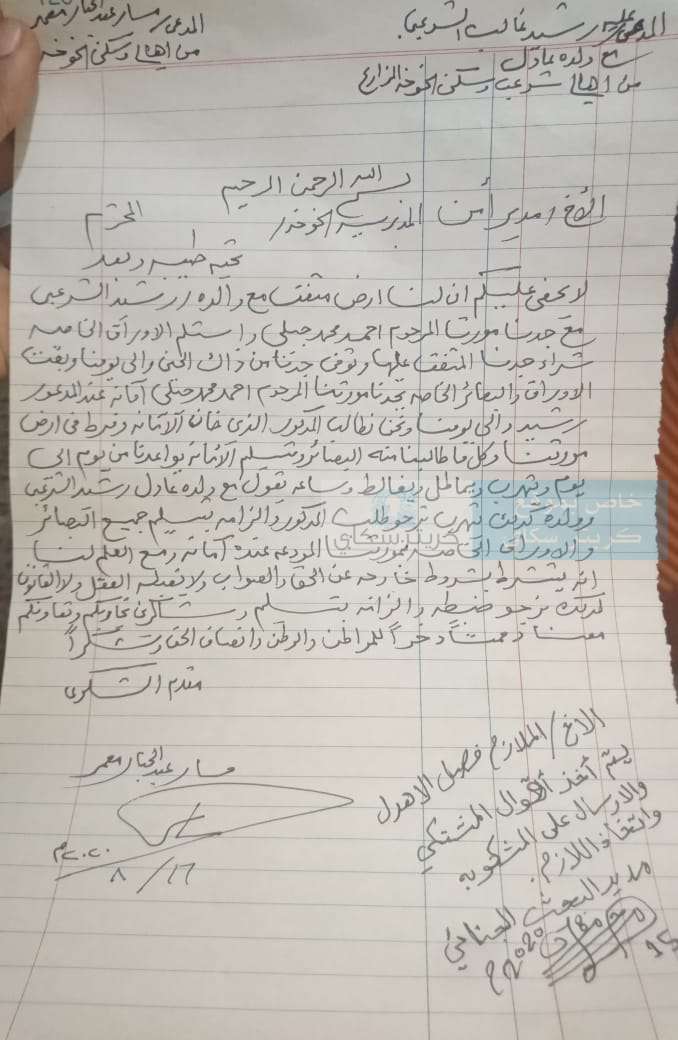 المدعى عليه/ رشيد غالب الشرعبي
مع ولده عادل
من اهالي شرعب وسكن الخوخه الزارع
المدعي/ مسار عبدالجبار معمر
من اهالي وسكن الخوخه
بسم الله الرحمن الرحيم
الأخ / مدير أمن المديريه الخوخه / المحترم
تحيه طيبه وبعد
لا يخفى عليكم ان لنا ارض متفقا مع والده / رشيد الشرعبي
مع جدنا مورثنا المرحوم احمد محمد جبلي واستلم الاوراق الخاصه
شراء جدنا المتفق عليها وتوفى جدنا من ذاك الحين والى يومنا وبقت
الاوراق والبصائر الخاصه بجدنا مورثنا المرحوم احمد محمد جبلي أمانه عند المدعو
رشيد والى يومنا ونحن نطالب المذكور الذي خان الأمانه وفرط في ارض
مورثنا وكل ما طالبنا منه البصائر وتسليم الأمانه يواعدنا من يوم الى
يوم ويتهرب ويماطل ويغالط وساعه يقول مع ولده عادل رشيد الشرعبي
وولده كذلك يتهرب نرجو طلب المذكور والزامه بتسليم جميع البصائر
والاوراق الخاصه بمورثنا المودعه عنده أمانه ومع العلم لنا
انه يشترط بشروط خارجه عن الحق والصواب ولا يقبله العقل ولا القانون
لذلك نرجو ضبطه والزامه بتسليم وشاكرين تجاوبكم وتعاونكم
معنا دمتم ذخراً للمواطن والوطن وانصاف الحق وشكراً
مقدم الشكوى
مسار عبدالجبار معمر
٢٠٢٠م
٨/١٦
الاخ / الملازم فصيل الاهدل
يتم أخذ أقوال المشتكي
والارسال على المشكو به
واتخاذ اللازم.
مدير البحث الجنائي
2020م
خاص بموقع
كريتر سكاي